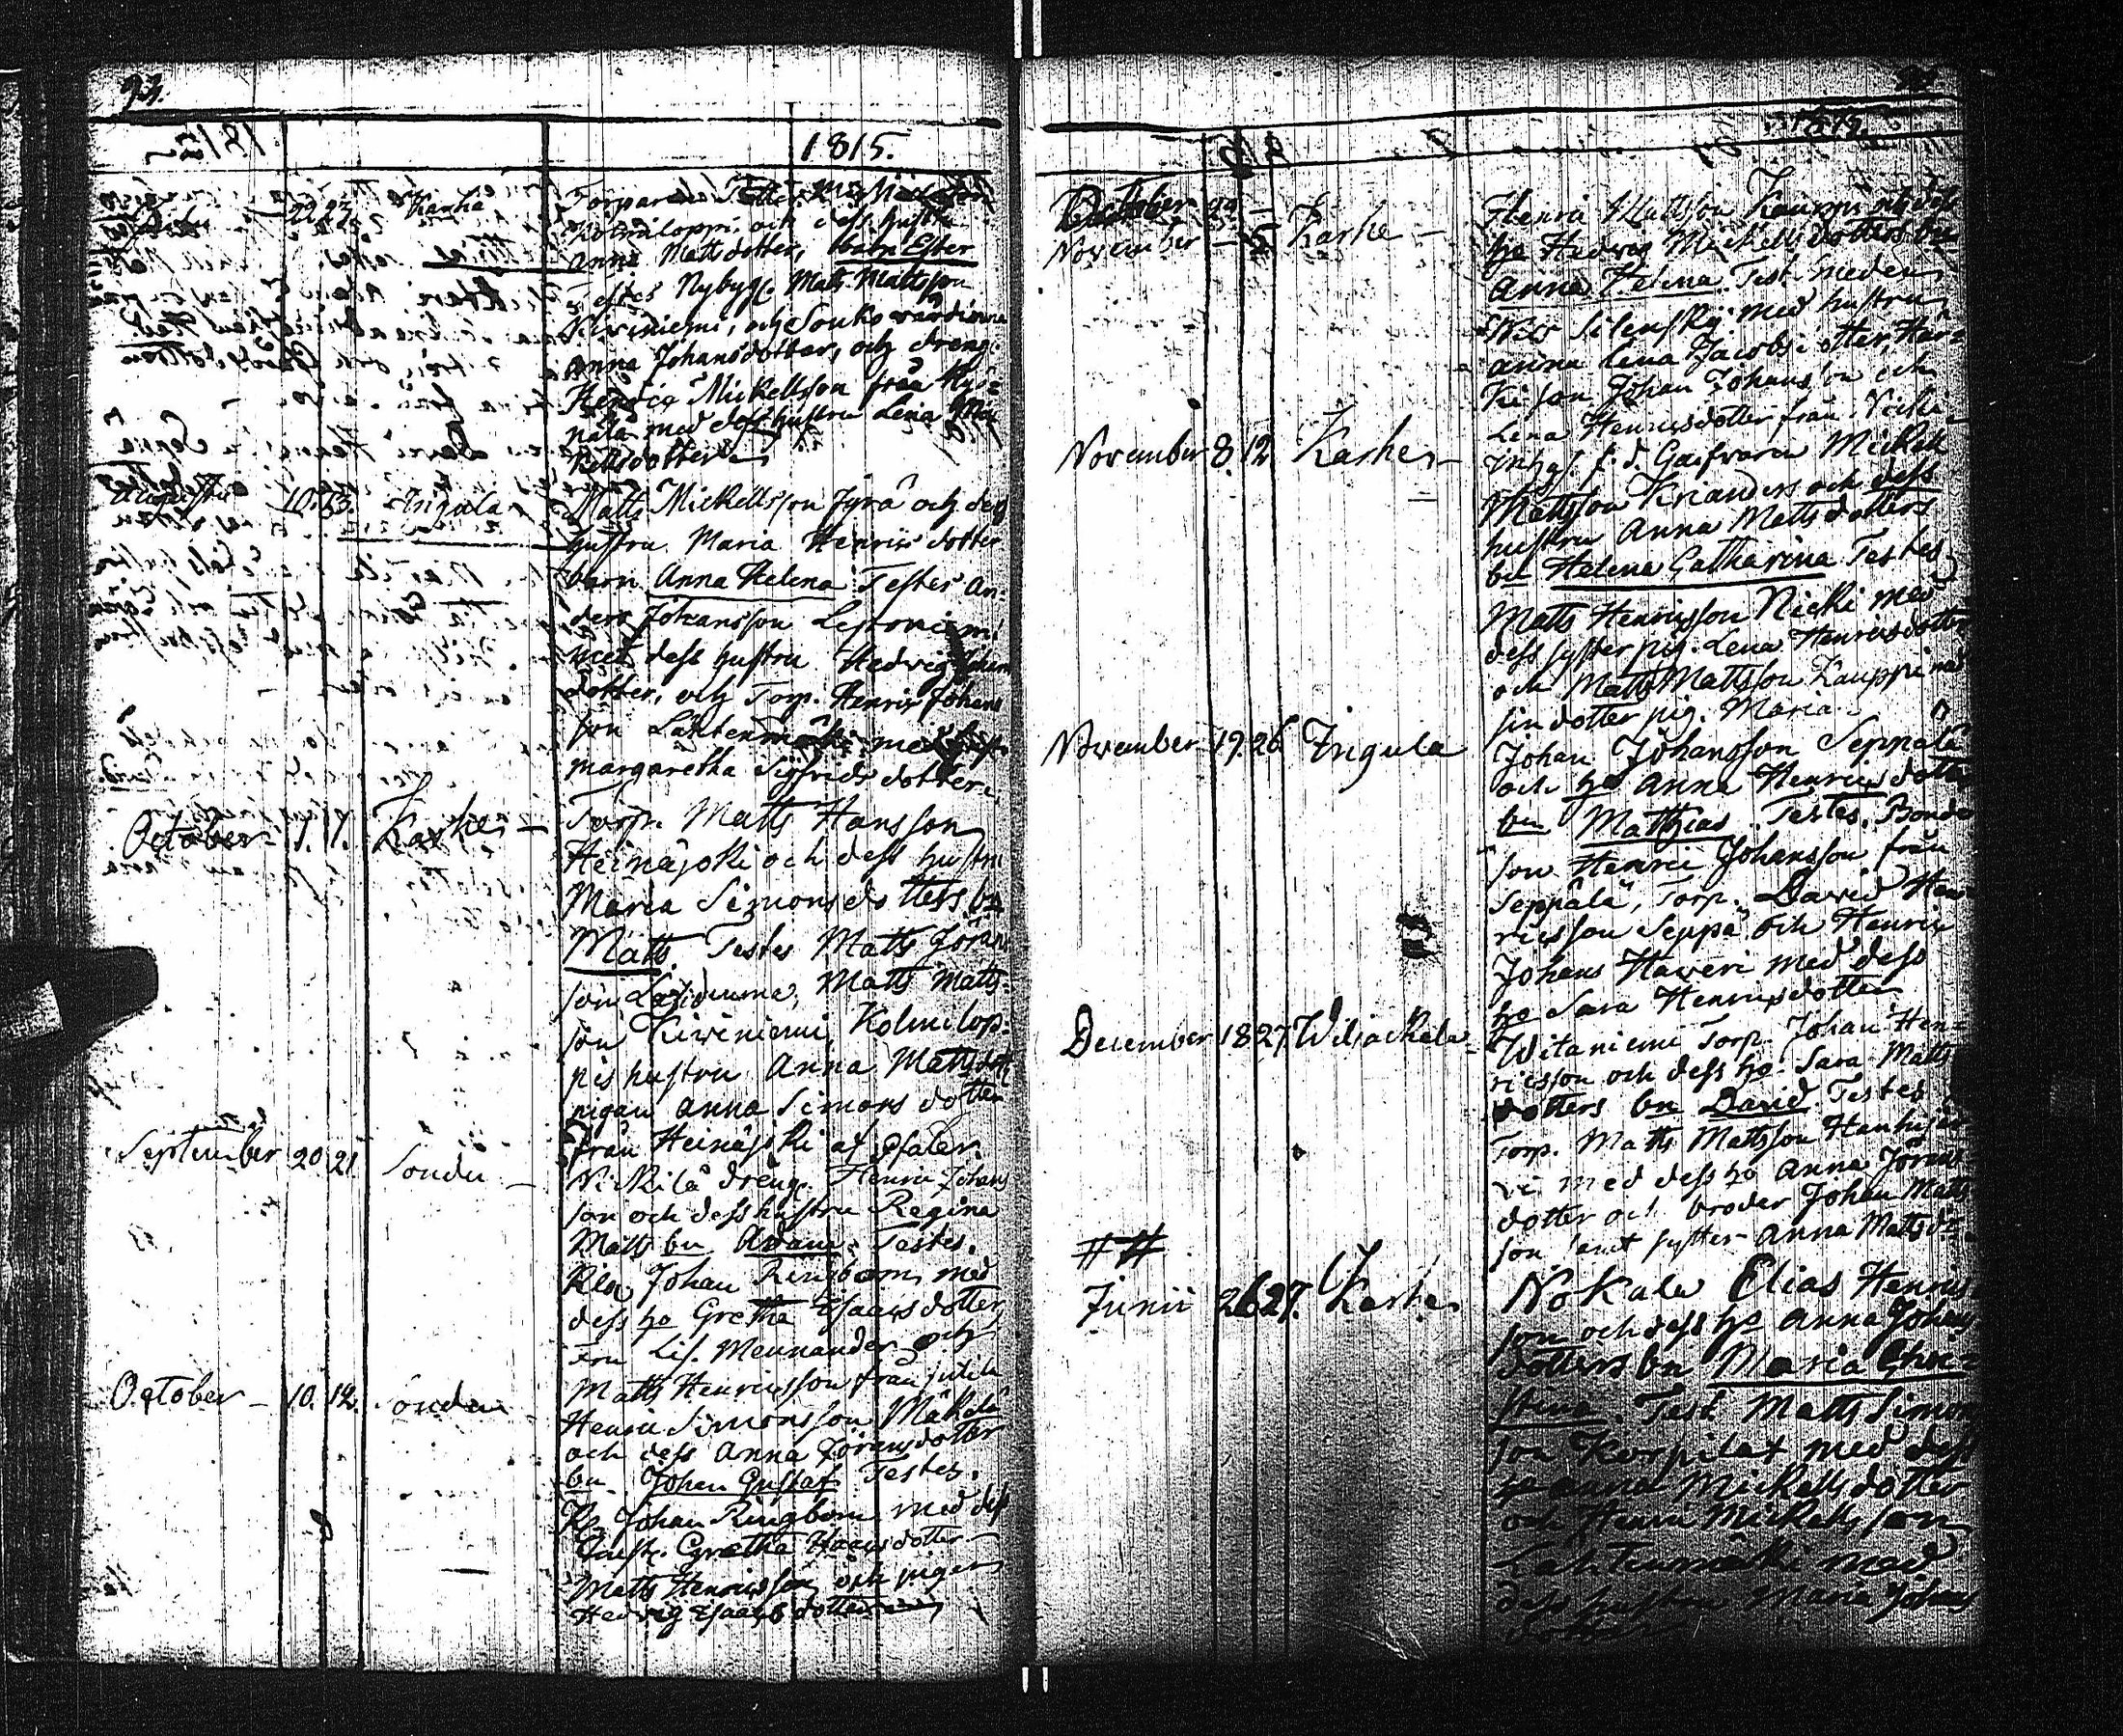 93.
1815.
22 23 Karhe
Kolmiloppi, och dess hustru
Anna Mattsdotter, barn Ester
Testes Nybygg. Matts Mattsson
Kiwiniemi, och Souko värdinna
Anna Johansdotter, och dreng.
Henric Mickelsson från Ky=
nälä med dess hustru Lena Mic
kelsdotter
Augusti 10. 13. Ingula
Matts Mickelsson Jyrä och dess
hustru Maria Henrics dotter
barn Anna Helena Testes An-
ders Johansson Leponiemi
med dess hustru Hedvig Johans
dotter, och Torp. Henric Johans
son Lähtenmäki med hustr.
Margaretha Sigfrids dotter
October 1. 1. Karhe
Torp. Matts Hansson
Heinäjoki och dess hustru
Maria Simonsdotters bn
Matts. Testes Matts Jörans
son, Matts Matts-
son Kiwiniemi, Kolmilop-
pis hustru Anna Mattsdott
pigan Anna Simons dotter
från Heinäjoki
September 20 21 Sondu
Nickilä dreng. Henric Johans
son och dess hustru Regina
Matts bn Adam. Testes.
Johan Ringbom med
dess ho Gretha Isaacsdotter
Fru Lis. Mennander och
Matts Henricsson från
October 10. 12. Sondu
Henric Simonsson Mäkelä
och dess Anna Jöransdotter
bn. Johan Gustaf Testes.
Johan Ringbom med dess
hustr. Gretha Isaacsdotter
Matts Henricsson och pigan
Hedvig Isaacsdotter
October 29
November 5 Karhe
Henric Mattsson Kauppi och dess
ho Hedvig Mickelsdotters bn
Anna Helena Test. Smeden
Silensky med hustru
Anna Lena Jacobsdotter, Har=
Johan Johansson och
Lena Henricsdotter från Nicki
November 8. 12 Karhe
Inhys. f. d. Gardvaren Mickel
Mattsson Kriander och dess
hustru Anna Mattsdotters
bn Helena Catharina Testes
Matts Henricsson Nicki med
dess syster pig. Lena Henricsdotter
och Matts Mattsson Kauppi med
sin dotter pig. Maria
November 19. 26 Ingula
Johan Johansson Seppälä
och ho Anna Henricsdotters
bn Matthias. Testes. Bonde
son Henric Johansson från
Seppälä, Torp. David Hen
ricsson Seppä och Henric
Johans Haweri med dess
ho Sara Henricsdotter
December 18 27 Wiljackala
Witaniemi Torp. Johan Hen=
ricsson och dess ho. Sara Matts
dotters bn David Testes
Torp. Matts Mattsson Hanhijär
vi med dess ho Anna Jörans
dotter och broder Johan Matts
son samt syster Anna Mattsd.
Junii 26 27. Karhe
Nokala Elias Henrics
son och dess ho Anna Johans
dotters bn Maria Chri=
stina. Test Matts Simons
son Korpilax med dess
ho Anna Mickelsdotter
och Henric Mickelsson
Lahtenmäki med
dess hustru Maria Johans
dotter